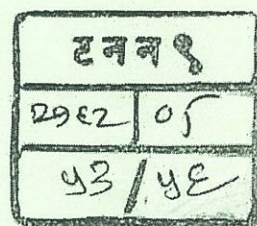 टनन१
२१६२ | ०५
५३ / ५६